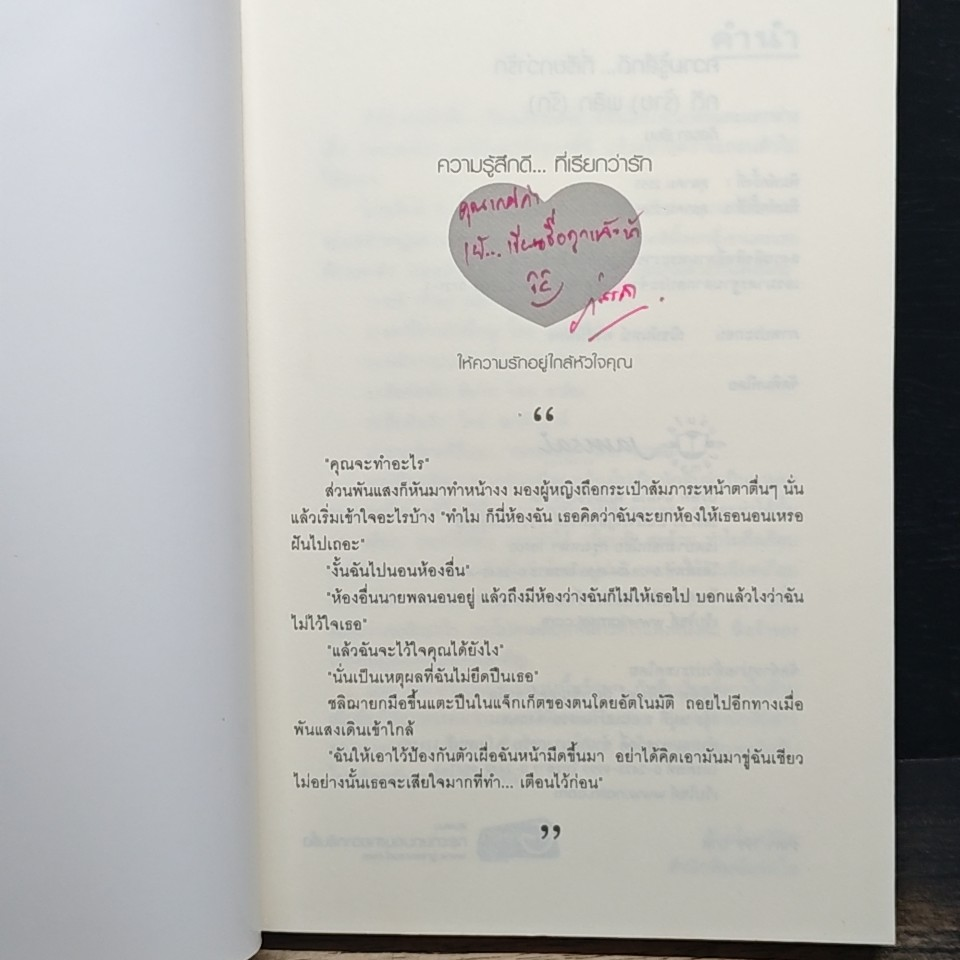 ความรู้สึกดี... ที่เรียกว่ารัก
เย้... เขียนชื่อถูกแล้วน้า
ให้ความรักอยู่ใกล้หัวใจคุณ
“
"คุณจะทำอะไร"
ส่วนพันแสงก็หันมาทำหน้างง มองผู้หญิงถือกระเป๋าสัมภาระหน้าตาตื่นๆ นั่น
แล้วเริ่มเข้าใจอะไรบ้าง "ทำไม ก็นี่ห้องฉัน เธอคิดว่าฉันจะยกห้องให้เธอนอนเหรอ
ฝันไปเถอะ"
"งั้นฉันไปนอนห้องอื่น"
"ห้องอื่นนายพลนอนอยู่ แล้วถึงมีห้องว่างฉันก็ไม่ให้เธอไป บอกแล้วไงว่าฉัน
ไม่ไว้ใจเธอ"
"แล้วฉันจะไว้ใจคุณได้ยังไง"
"นั่นเป็นเหตุผลที่ฉันไม่ยึดปืนเธอ"
ชลิฌายกมือขึ้นแตะปืนในแจ็กเก็ตของตนโดยอัตโนมัติ ถอยไปอีกทางเมื่อ
พันแสงเดินเข้าใกล้
"ฉันให้เอาไว้ป้องกันตัวเผื่อฉันหน้ามืดขึ้นมา อย่าได้คิดเอามันมาขู่ฉันเชียว
ไม่อย่างนั้นเธอจะเสียใจมากที่ทำ... เตือนไว้ก่อน"
”